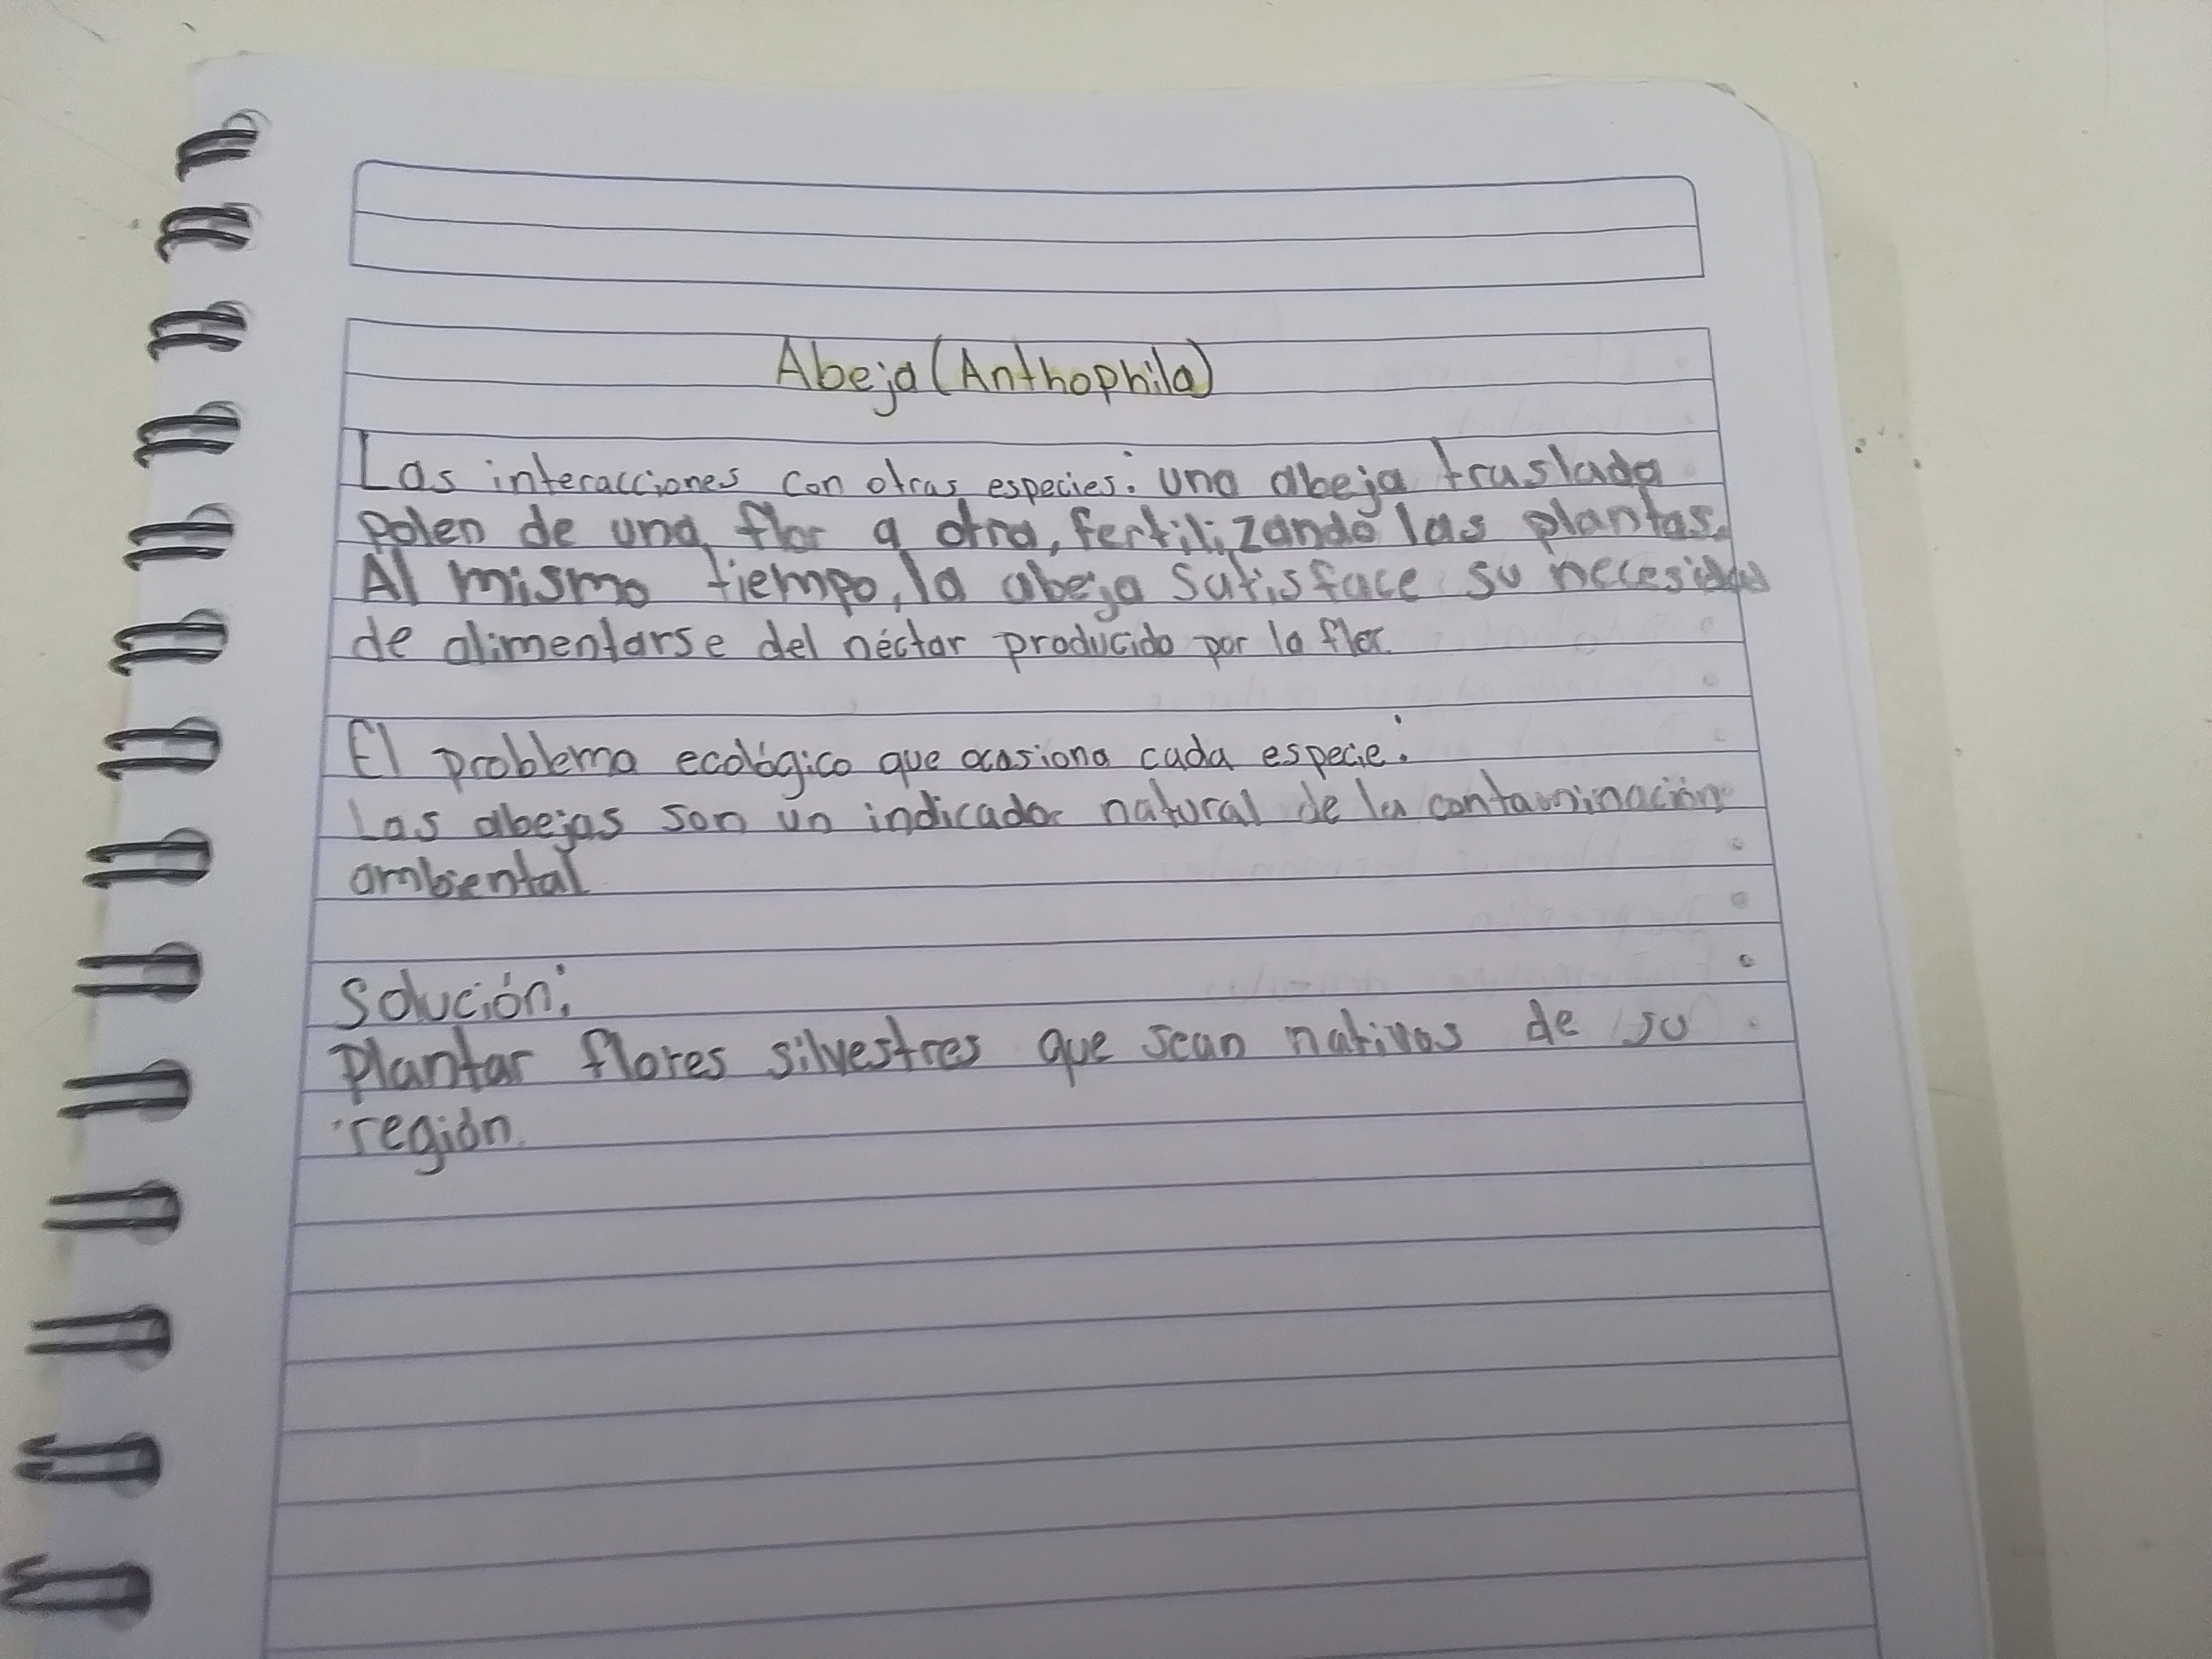 Abeja (Anthophila)
Las interacciones con otras especies: una abeja traslada
polen de una flor a otra, fertilizando las plantas.
Al mismo tiempo, la abeja satisface su necesidad
de alimentarse del néctar producido por la flor.
El problema ecológico que ocasiona cada especie:
Las abejas son un indicador natural de la contaminación
ambiental
Solución:
Plantar flores silvestres que sean nativas de su
región.